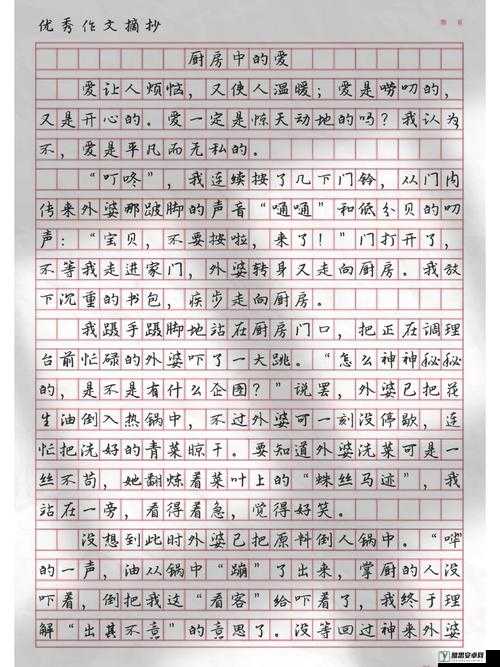 优秀作文摘抄
厨房中的爱
爱让人烦恼，又使人温暖；爱是唠叨的，
又是开心的。爱一定是惊天动地的吗？我认为
不，爱是平凡而无私的。
“叮咚”，我连续按了几下门铃，从门内
传来外婆那跛脚的声音“嗵嗵”和低分贝的叨
声：“宝贝，不要按啦，来了！”门打开了，
不等我走进家门，外婆转身又走向厨房。我放
下沉重的书包，疾步走向厨房。
我蹑手蹑脚地站在厨房门口，把正在调理
台前忙碌的外婆吓了一大跳。“怎么神神秘秘
的，是不是有什么企图？”说罢，外婆已把花
生油倒入热锅中，不过外婆可一刻没停歇，连
忙把洗好的青菜晾干。要知道外婆洗菜可是一
丝不苟，她翻炼着菜叶上的“蛛丝马迹”，我
站在一旁，看得着急，觉得好笑。
没想到此时外婆已把原料倒人锅中。“哗”
的一声，油从锅中“蹦”了出来，掌厨的人没
吓着，倒把我这“看客”给吓着了，我终于理
解“出其不意”的意思了。没等回过神来外婆
雅思安卓网